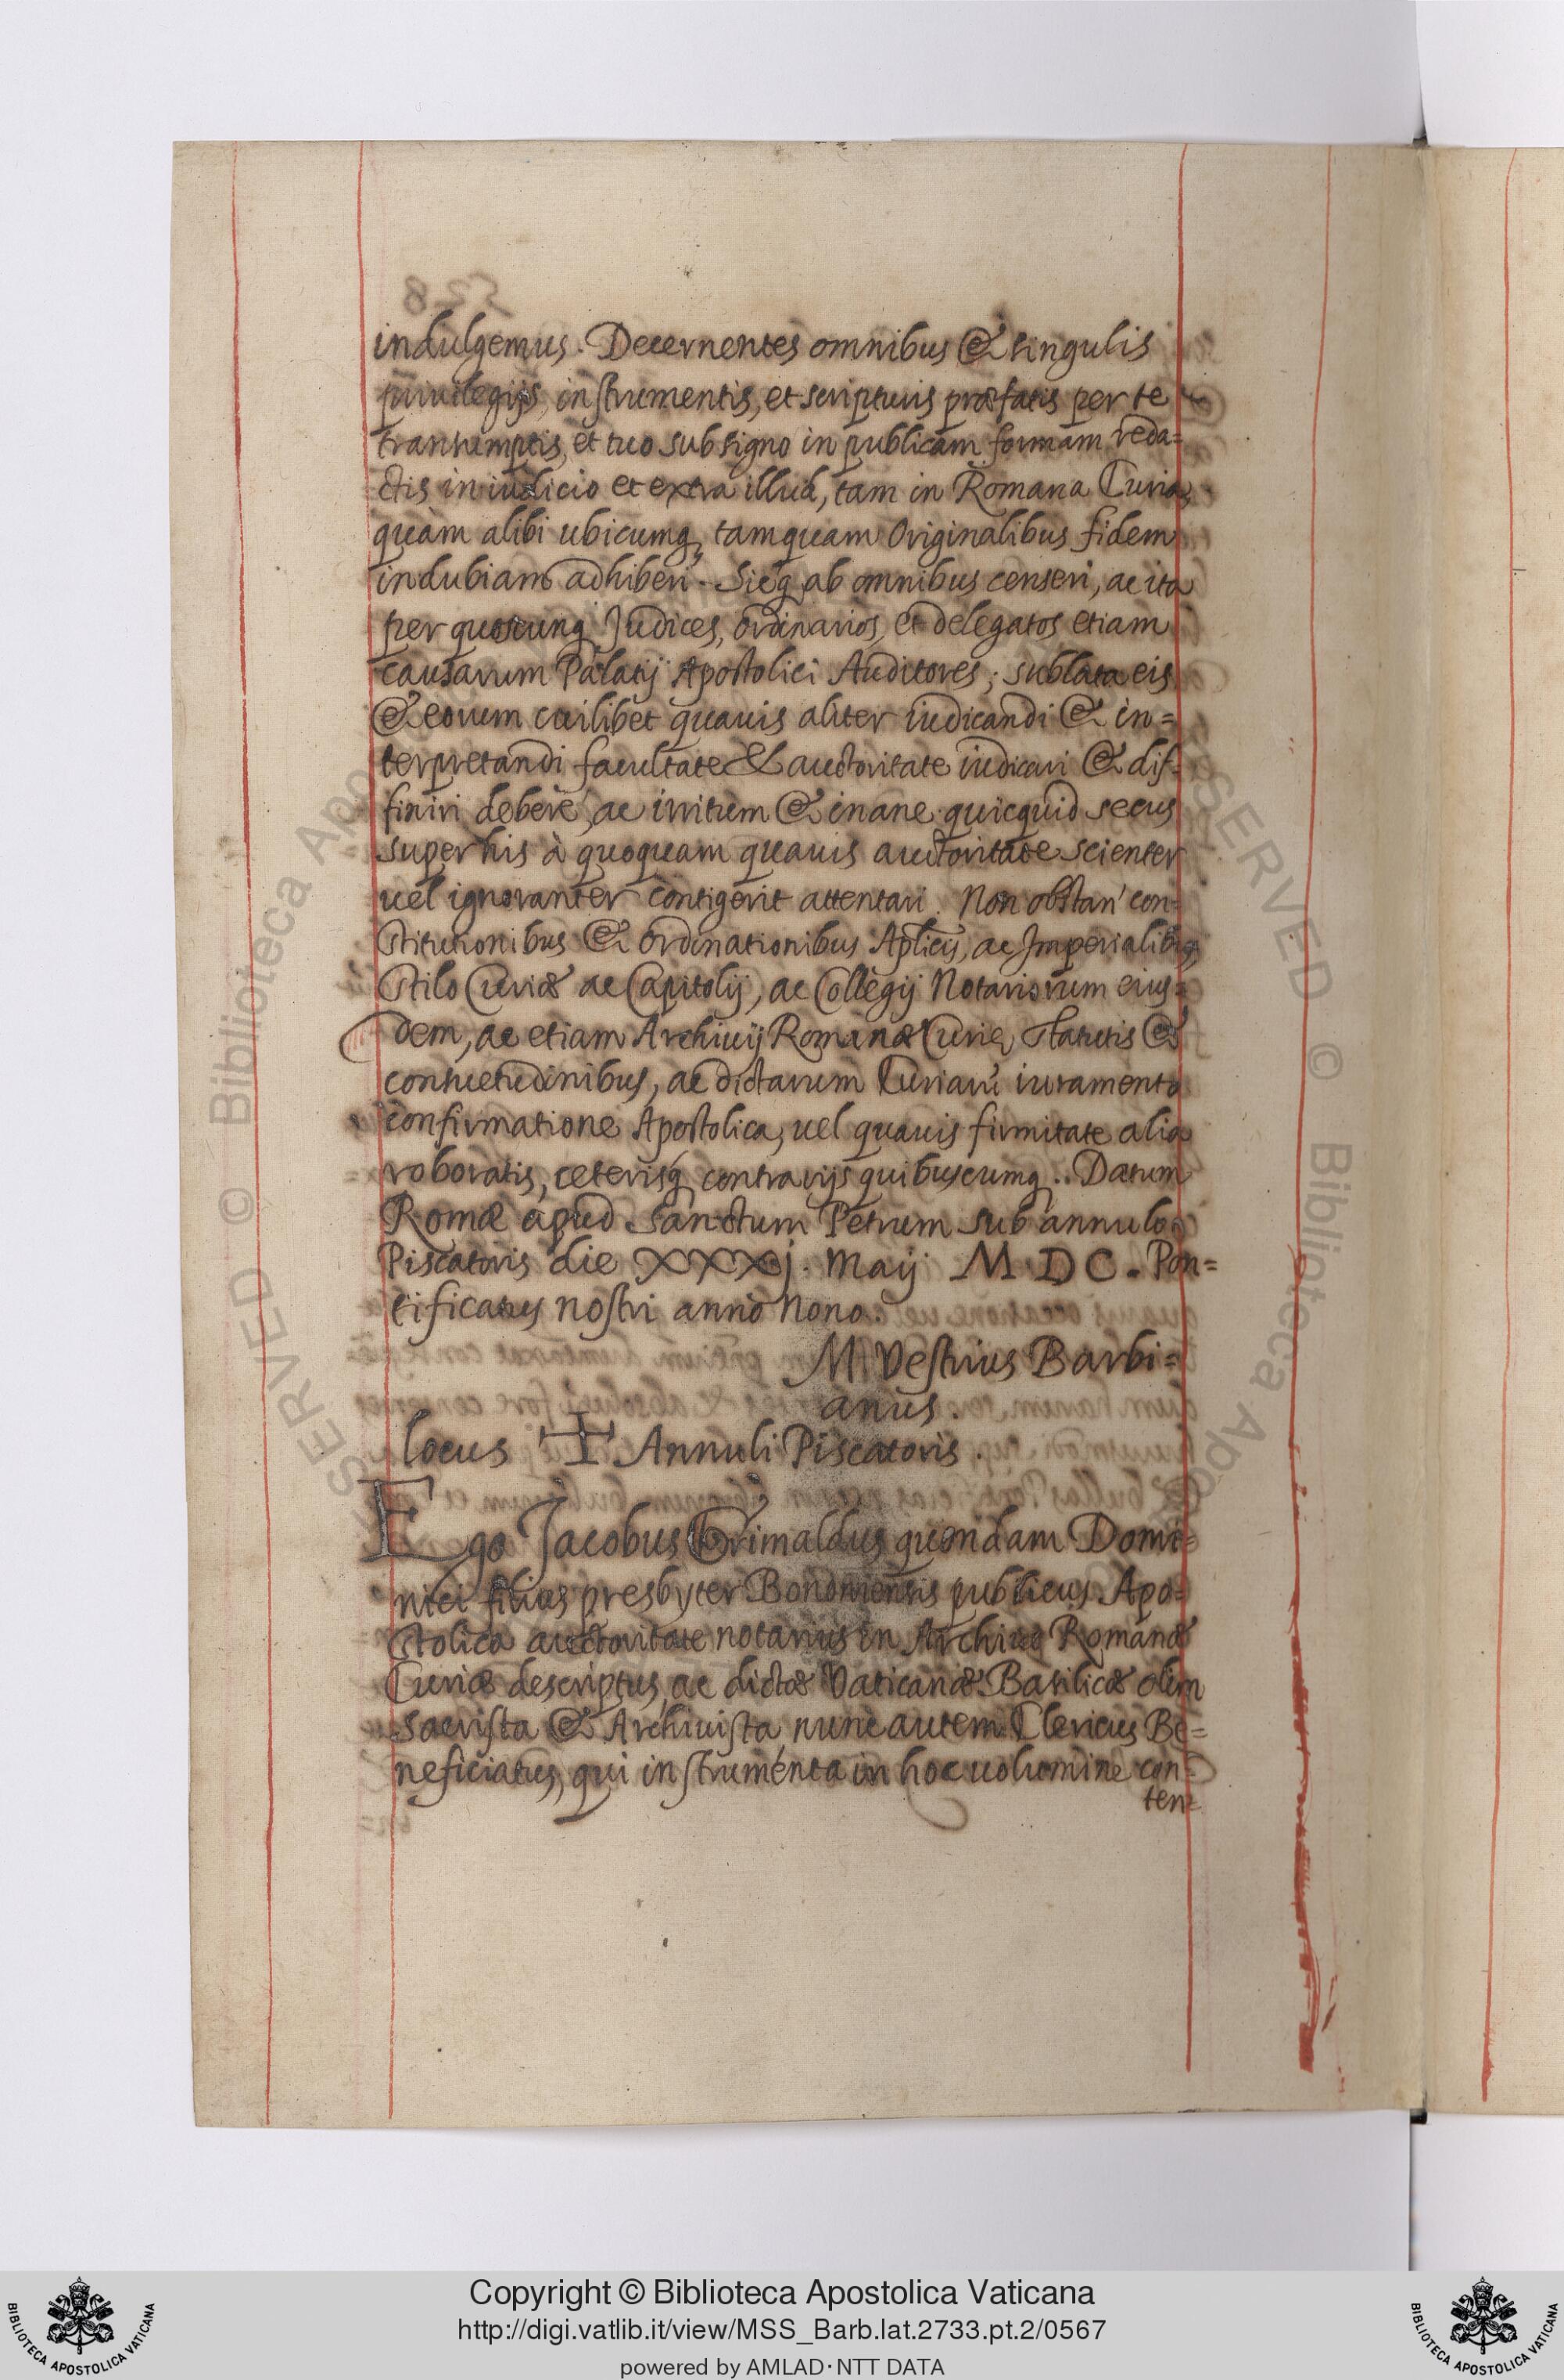 indulgemus. Decernentes omnibus & singulis
priuilegijs, instrumentis, et scripturis præfatis per te
transumptis, et tuo subsigno in publicam formam reda=
ctis in iudicio et extra illud, tam in Romana Curia,
quàm alibi ubicumq, tamquam Originalibus fidem
indubiam adhiberi. Sicq ab omnibus censeri, ac ita
per quoscunq Judices, ordinarios, et delegatos etiam
causarum Palatij Apostolici Auditores; sublata eis
& eorum cuilibet quauis aliter iudicandi & in=
terpretandi facultate & auctoritate iudicari & dif=
finiri debere, ac irritum & inane quicquid secus
super his à quoquam quauis auctoritate scienter
uel ignoranter contigerit attentari. Non obstan' con=
stitutionibus & ordinationibus Aplicis, ac Imperialibus,
Stilo Curiæ ac Capitolij, ac Collegij Notariorum eius=
dem, ac etiam Archiuij Romanæ Curię, statutis &
consuetudinibus, ac dictarum Curiarũ iuramento
confirmatione Apostolica, uel quauis firmitate alia
roboratis, ceterisq contrarijs quibuscumq.. Datum
Romæ apud Sanctum Petrum sub annulo
Piscatoris die XXXj. Maij M. D C. Pon=
tificatus nostri anno Nono.
M. Vestrius Barbi=
anus.
locus ✝ Annuli Piscatoris.
Ego Jacobus Grimaldus quondam Domi=
nici filius presbyter Bononiensis publicus Apo=
stolica auctoritate notarius in Archiuo Romanæ
Curiæ descriptus, ac dictæ Vaticanæ Basilicæ olim
Sacrista & Archiuista, nunc autem Clericus Be=
neficiatus, qui instrumenta in hoc uolumine con=
ten=
Copyright © Biblioteca Apostolica Vaticana
http://digi.vatlib.it/view/MSS_Barb.lat.2733.pt.2/0567
powered by AMLAD·NTT DATA
BIBLIOTECA APOSTOLICA VATICANA
BIBLIOTECA APOSTOLICA VATICANA